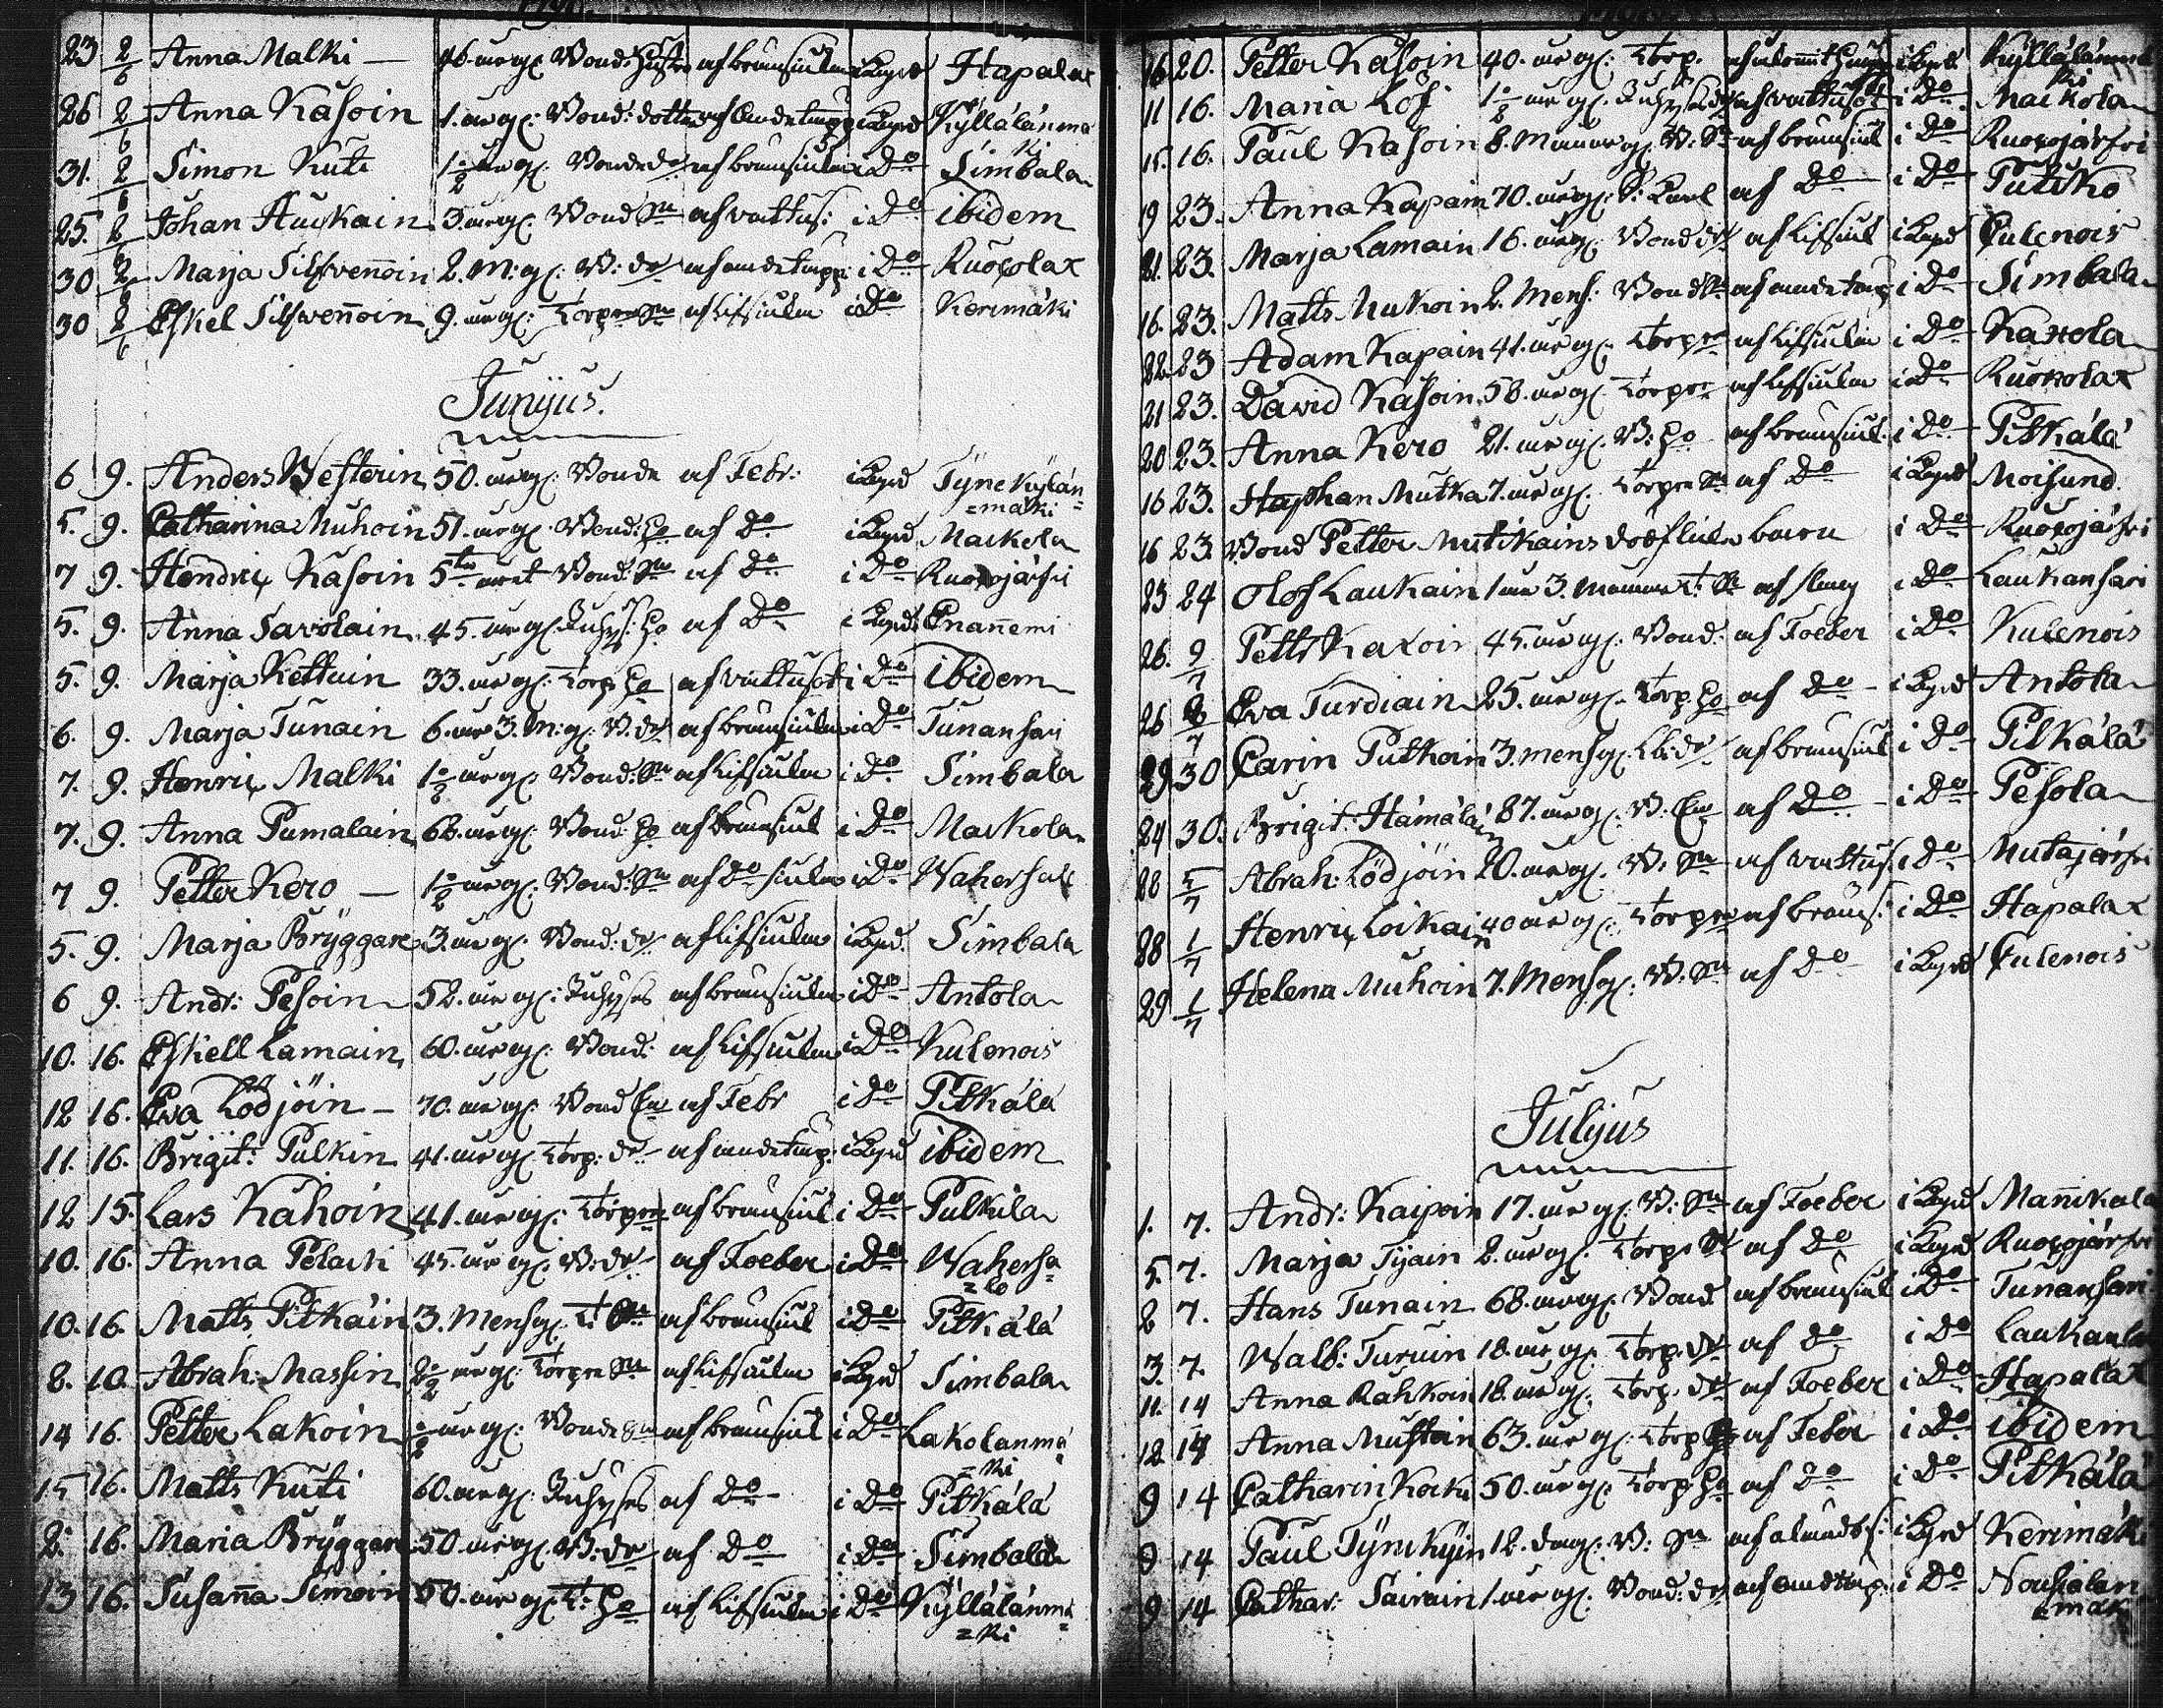 23 2/6 Anna Malki — 46. år gl: Bond: Hustro af brännsiukan i Kyrd Hapalax
26 2/6 Anna Kåsoin 1. år gl: Bond: dotter af andetäppa i Kyrd Kyllälänmä
ki
31. 2/6 Simon Kuti 1 1/2 år gl: af brännsiukan i Do Simbala
25. 2/6 Johan Auvkain 3. år gl: Bond Sn af vattus: i Do ibidem
30 2/6 Marja Silfvenoin 2. M: gl: B: dr af andetäppa i Do Ruokolax
30 2/6 Eskel Silfwenoin 9. år gl: Torpare Sn af Lifsiukan i Do Kerimäki
Junjus.
6 9. Anders Westerin 50. år gl: Bonde af Febr: i Kyrd Tynckylän=
=mäki
5. 9. Catharina Muhoin 51. år gl: Bond: Ho af Do i Kyrd Mackola
7 9. Hendric Kåsoin 5 Bond: Sn af Do i Do Ruokojärfvi
5. 9. Anna Savolain 45. år gl: Inhys: Ho af Do i Kyrd Enanemi
5. 9. Marja Kettuin 33. år gl: Torp: Ho af vattusot i Do ibidem
6. 9. Marja Tunain 6. år 3. M: gl: B. dr af brännsiukan i Do Tunansari
7. 9. Henric Malki 1 1/2 år gl: Bond: Sn af Lifsiukan i Do Simbala
7. 9. Anna Pumalain 68. år gl: Bond Ho af brännsiuk i Do Mackola
7 9. Petter Kero — 1 1/2 år gl: Bond: Sn af Do siukan i Do Wahersalo
5. 9. Marja Bryggare 3. år gl: Bond: dr af Lifsiukan i Kyrd Simbala
6 9. Andr: Pesoin 52. år gl: Inhyses af brännsiukan i Do Antola
10. 16. Eskell Lamain 60. år gl: Bond: af Lifsiukan i Do Kulenois
12 16. Eva Lödjöin — 70. år gl: Bond Ea af Febr i Do Pitkälä
11. 16. Brigit: Pulkin 41. år gl: Torp: dr af andetäp: i Kyrd ibidem
12 15. Lars Kahoin 41. år gl: Torpare af brännsiuk i Do Pulkila
10. 16. Anna 45. år gl: B: dr af Foeber i Do Wahersa=
=lo
10. 16. Matts Pitkäin 3. Mens gl: T: Sn af brännsiuk i Do Pitkälä
8. 10. Abrah: Massin 2 1/2 år gl: Torpare Sn af Lifsiukan i Kyrd Simbala
14 16. Petter Lakoin 1/2 år gl: Bonde Sn af brännsiuk i Do Lakolanmä
=ki
15 16. Matts Kuti 60. år gl: Inhyses af Do i Do Pitkälä
2. 16. Maria Bryggare 50. år gl: B: dr af Do i Do Simbala
13 16. Susana Simoin 50. år gl: T: Ho af Lifsiukan i Do Kyllälänmä=
=ki
16 20. Petter Kåsoin 40. år gl: Torp. i Kyrd Kyllälänmä
ki
11 16. Maria Löf 1 1/2 år gl: af vattusot i Do Mackola
15. 16. Paul Kåsoin 8. Månar gl: B: Sn af brännsiuk i Do Ruokojärfvi
19 23. Anna Kapain 70. år gl: af Do i Do Putiko
21. 23. Marja Lamain 16. år gl: Bond dr af Lifsiuk i Kyrd Culenois
16. 23. Matts Mukoin 2. Mens: Bond Sn af andetäp i Do Simbala
22 23 Adam Kapain 41. år gl: Torpre af Lifsiukan i Do Kaxola
21 23. David Kåsoin 58. år gl: Torpre af Lifsiukan i Do Ruokolax
20 23. Anna Kero 21. år gl: B: Ho af brännsiuk: i Do Pitkälä
16 23. Staphan Mutka 7. år gl: Torpre Sn af Do i Kyrd Moisund
16 23. Bond Petter Mutikains dödflutn barn i Do Ruokojärfvi
23 24 Olof Laukain 1 år 3. månar T: Sn af slag i Do Laukansari
26. 9/7 Pett: Kaxoin 45. år gl: Bond: af Foeber i Do Kulenois
26 2/7 Eva Turdiain 25. år gl: Torp. Ho af Do i Kyrd Antola
29 30 Carin Putkoin 3. mens gl: af brännsiuk i Do Pitkälä
24 30. Brigit: Hämäläin 87. år gl: B: Ea af Do i Do Pesola
28 5/7 Abrah: Lödjöin 20. år gl: B: Sn af vattus: i Do Mutajärfvi
28 1/7 Henric Loikain 40 år gl: Torpre af bräns: i Do Hapalax
29 1/7 Helena Muhoin 7. Mens gl: B: Sn af Do i Kyrd Culenois
Juljus
1. 7. Andr: Kaipoin 17. år gl: B: Sn af Foeber i Kyrd Manikala
5. 7. Marja Tyain 2. år gl: Torpr af Do i Kyrd Ruokojärfvi
2 7. Hans Tunain 68. år gl: Bond af brännsiuk i Do Tunansari
3. 7. Walb: Turuin 18. år gl: Torp. dr af Do i Do Laukan
11. 14 Anna Rahkoin 18. år gl: Torp. dr af Foeber i Do Hapalax
12 14 Anna Mustoin 63. år gl: Torp af Feber i Do ibidem
9 14 Catharin Kocku 50. år gl: Torp. Ho af Do i Do Pitkälä
9 14 Paul Tynckyin 12. dag: B: Sn i Kyrd Kerimäki
9 14 Cathar: Sairain 1. år gl: Bond: dr af andtäp: i Do Nousialan
=mäki